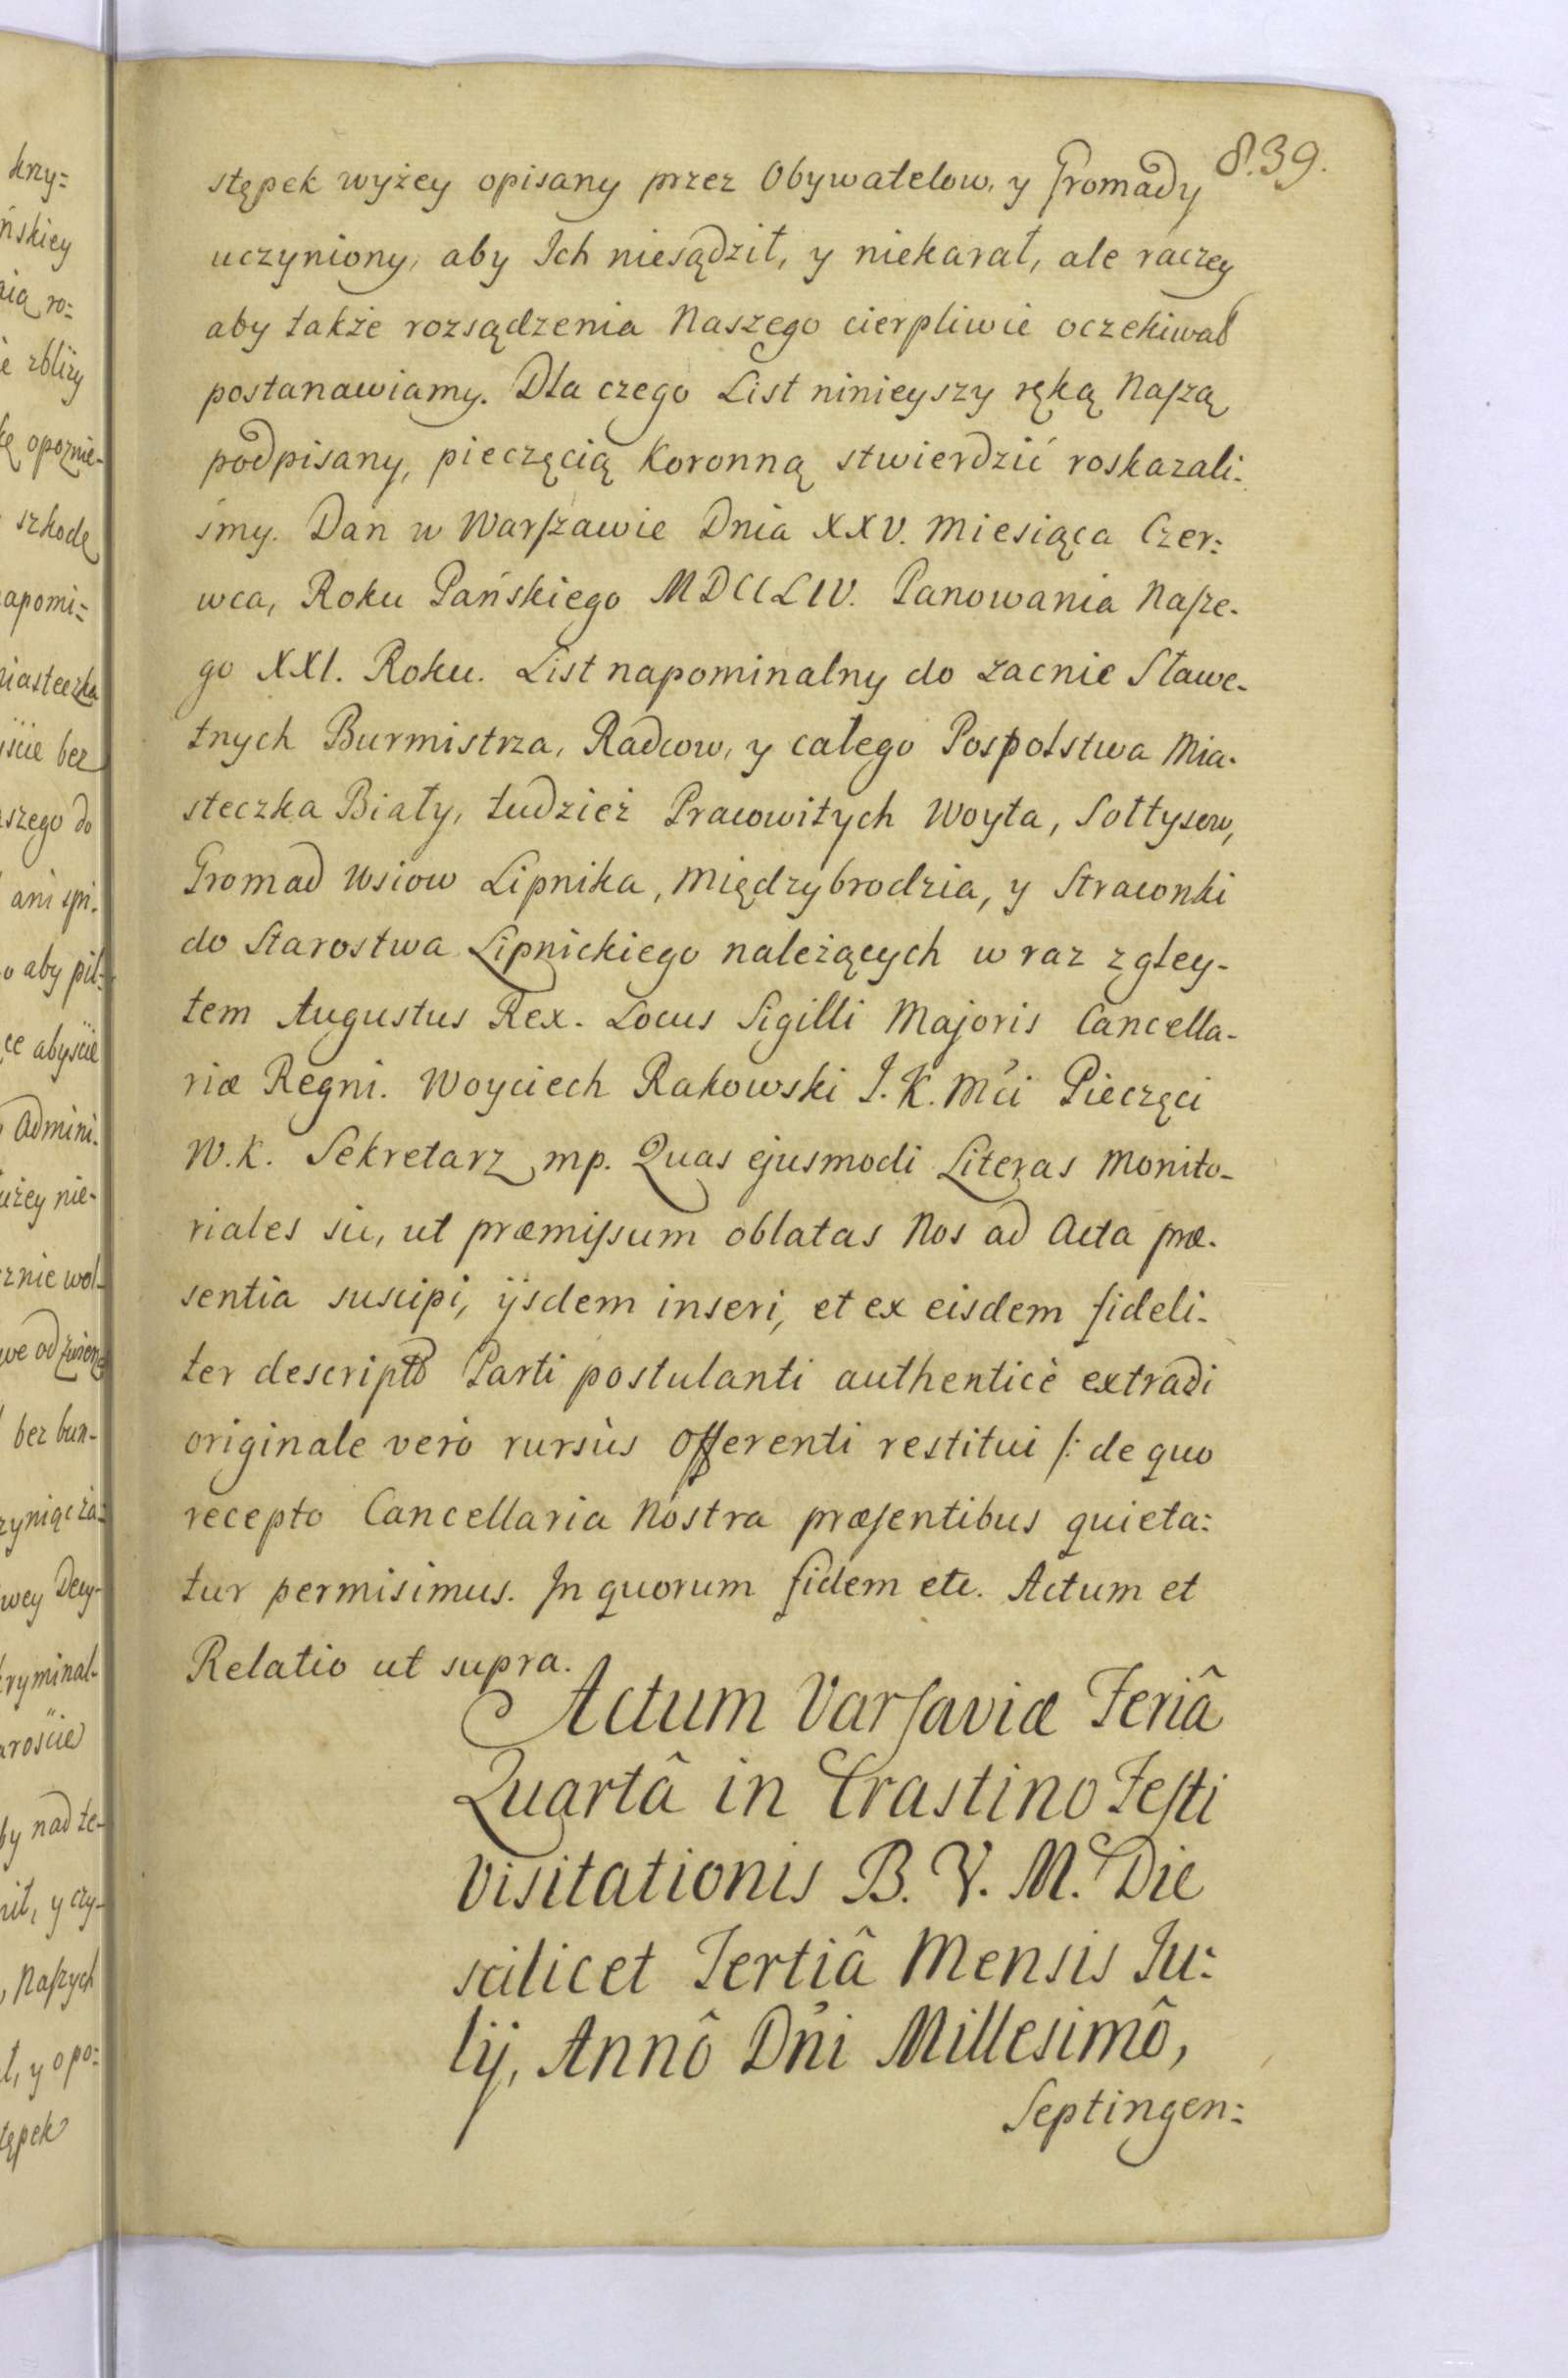 839.
stępek wyżey opisany przez Obywatelow, y Gromady
uczyniony, aby Ich niesądził, y niekarał, ale raczey
aby także rozsądzenia Naszego cierpliwie oczekiwał
postanawiamy. Dla czego List ninieyszy ręką Naszą
podpisany, pieczęcią Koronną stwierdzić roskazali:
śmy. Dan w Warszawie Dnia XXV. Miesiąca Czer:
wca, Roku Pańskiego MDCCLIV. Panowania Nasze-
go XXI. Roku. List napominalny do zacnie Sławe-
tnych Burmistrza, Radcow, y całego Pospolstwa Mia-
steczka Biały, tudzież Pracowitych Woyta, Sołtysow,
Gromad Wsiow Lipnika, Międzybrodzia, y Straconki
do Starostwa Lipnickiego należących w raz z gley-
tem Augustus Rex. Locus Sigilli Majoris Cancella-
riæ Regni. Woyciech Rakowski J. K. Mći Pieczęci
W. K. Sekretarz mp. Quas ejusmodi Literas Monito-
riales sic, ut præmissum oblatas Nos ad Acta præ-
sentia suscipi, ijsdem inseri, et ex eisdem fideli-
ter descripto Parti postulanti authenticè extradi
originale verò rursùs Offerenti restitui /: de quo
recepto Cancellaria Nostra præsentibus quieta:
tur permisimus. In quorum fidem etc. Actum et
Relatio ut supra.
Actum Varsaviæ Feriâ
Quartâ in Crastino Festi
Visitationis B. V. M. Die
scilicet Tertiâ Mensis Ju:
lij, Annô Dni Millesimô,
Septingen:
krzy=
ńskiey
nią ro:
ie zbliży
kę opoznie-
szkodę
napomi=
miasteczka
yście bez
aszego do
ani spi-
o aby pil-
ce abyście
Admini-
użey nie-
znie wol-
bez bun-
zyniąc za=
wey Decy-
kryminal-
aroście
by nad te-
nił, y czy-
, Naszych
ł, y opo:
tępek